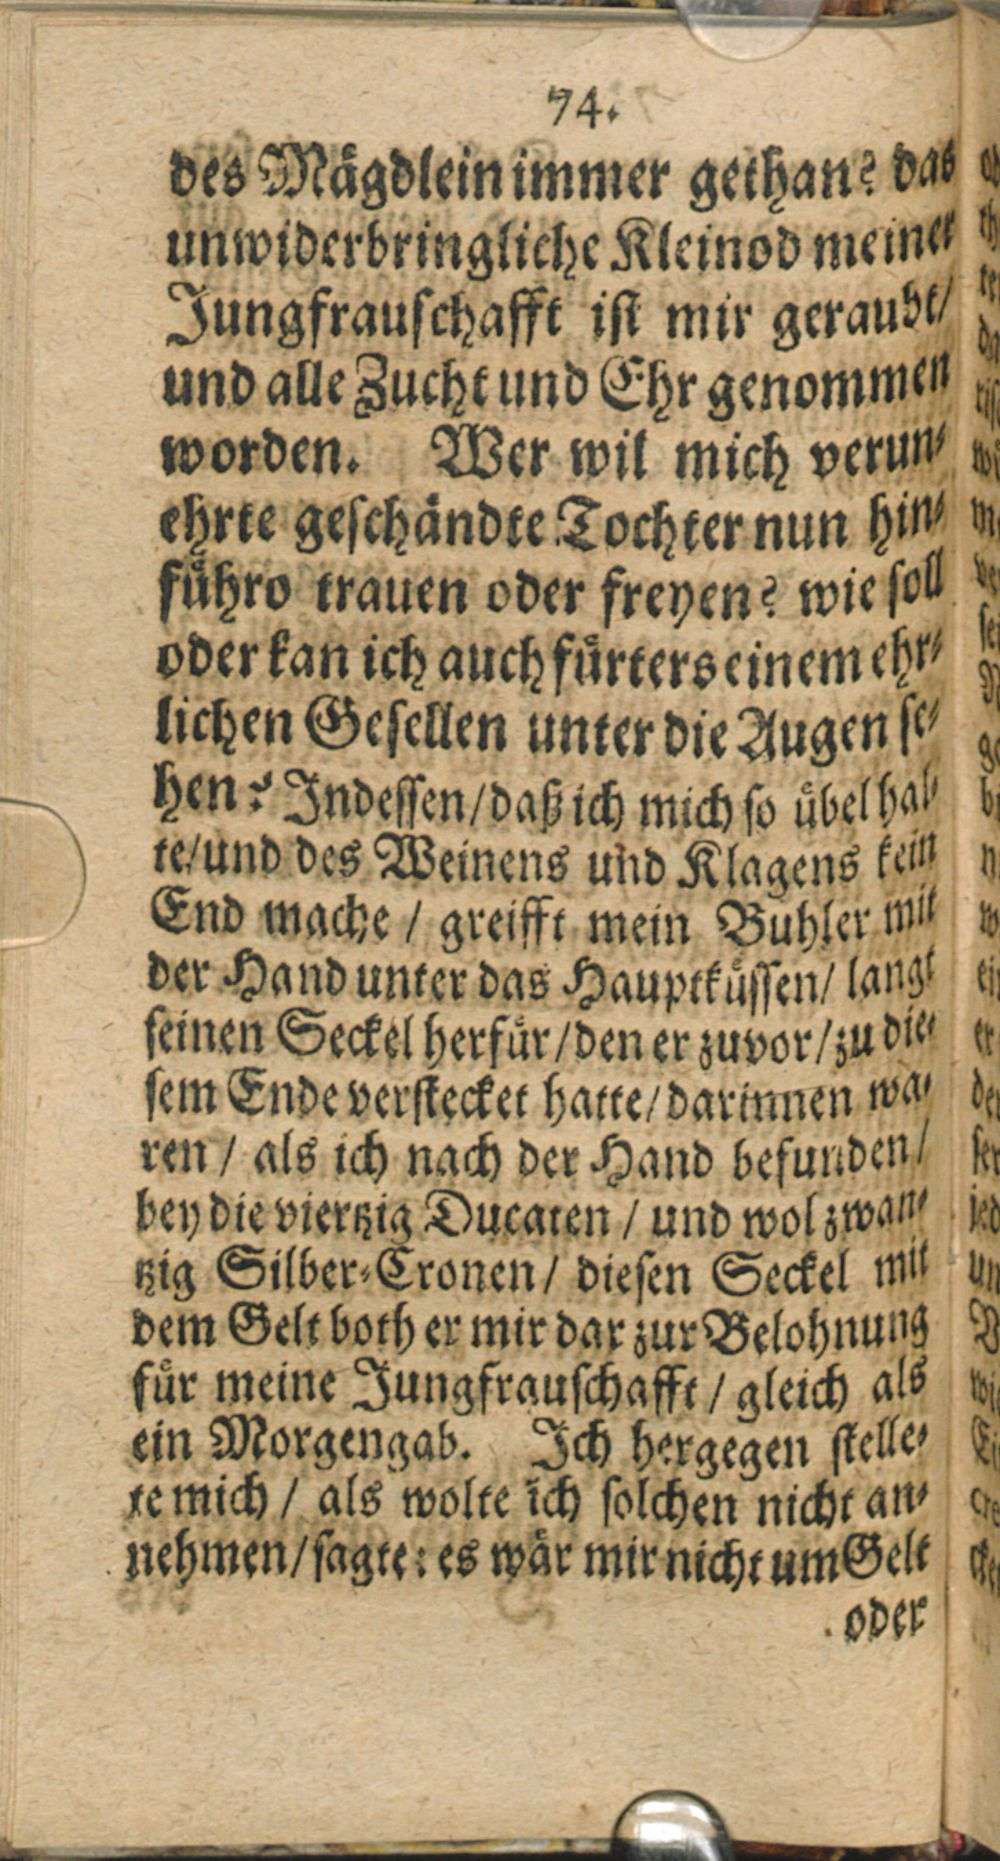 74.
des Mägdlein immer gethan? das
unwiderbringliche Kleinod meiner
Jungfrauschafft ist mir geraubt/
und alle Zucht und Ehr genommen
worden. Wer wil mich verun-
ehrte geschändte Tochter nun hin-
führo trauen oder freyen? wie soll
oder kan ich auch fürters einem ehr-
lichen Gesellen unter die Augen se-
hen? Indessen/daß ich mich so übel hal-
te/und des Weinens und Klagens kein
End mache / greifft mein Buhler mit
der Hand unter das Hauptküssen/ langt
seinen Seckel herfür/den er zuvor/zu die-
sem Ende verstecket hatte/darinnen wa-
ren / als ich nach der Hand befunden/
bey die viertzig Ducaten / und wol zwan-
tzig Silber-Cronen/ diesen Seckel mit
dem Gelt both er mir dar zur Belohnung
für meine Jungfrauschafft / gleich als
ein Morgengab. Ich hergegen stelle-
te mich / als wolte ich solchen nicht an-
nehmen/sagte: es wär mir nicht um Gelt
oder